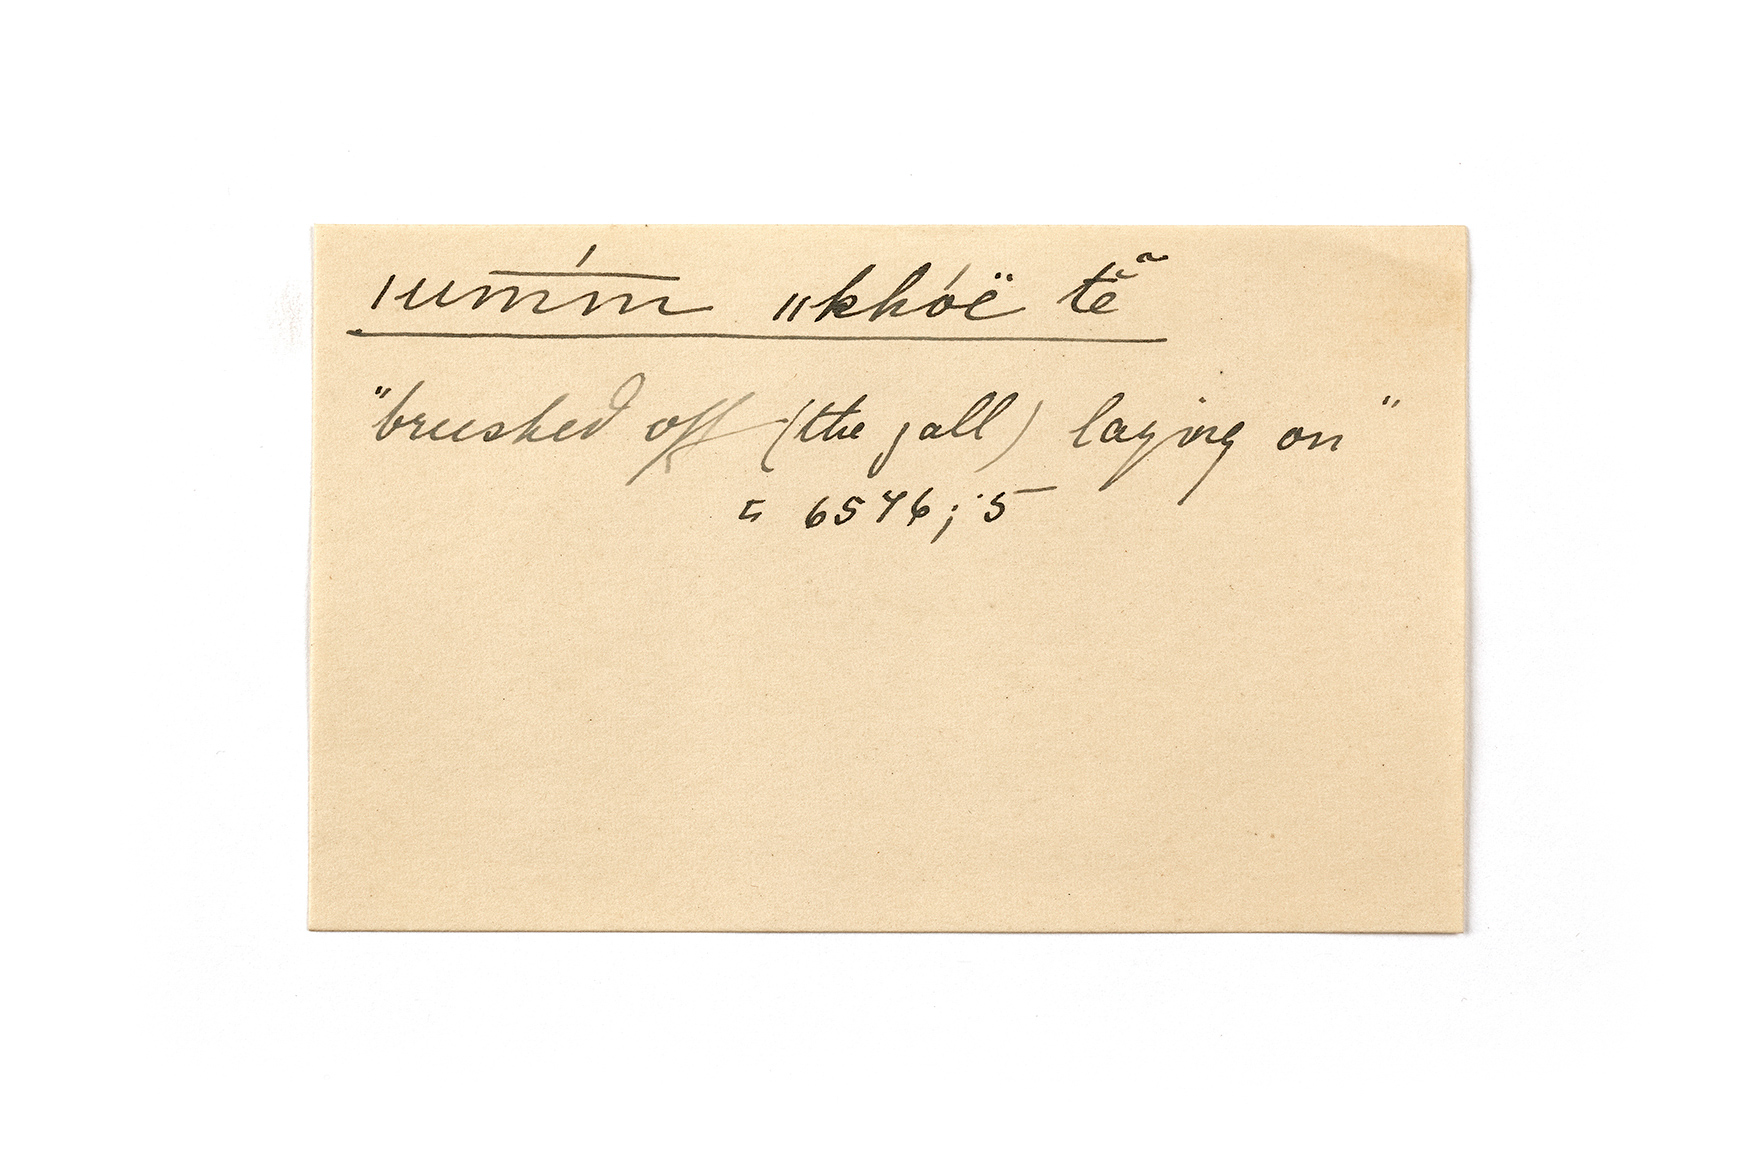 ıum̅́m̅ ııkhóë tĕ̃
"brushed off (the gall) laying on"
ㄷ 6546; 5